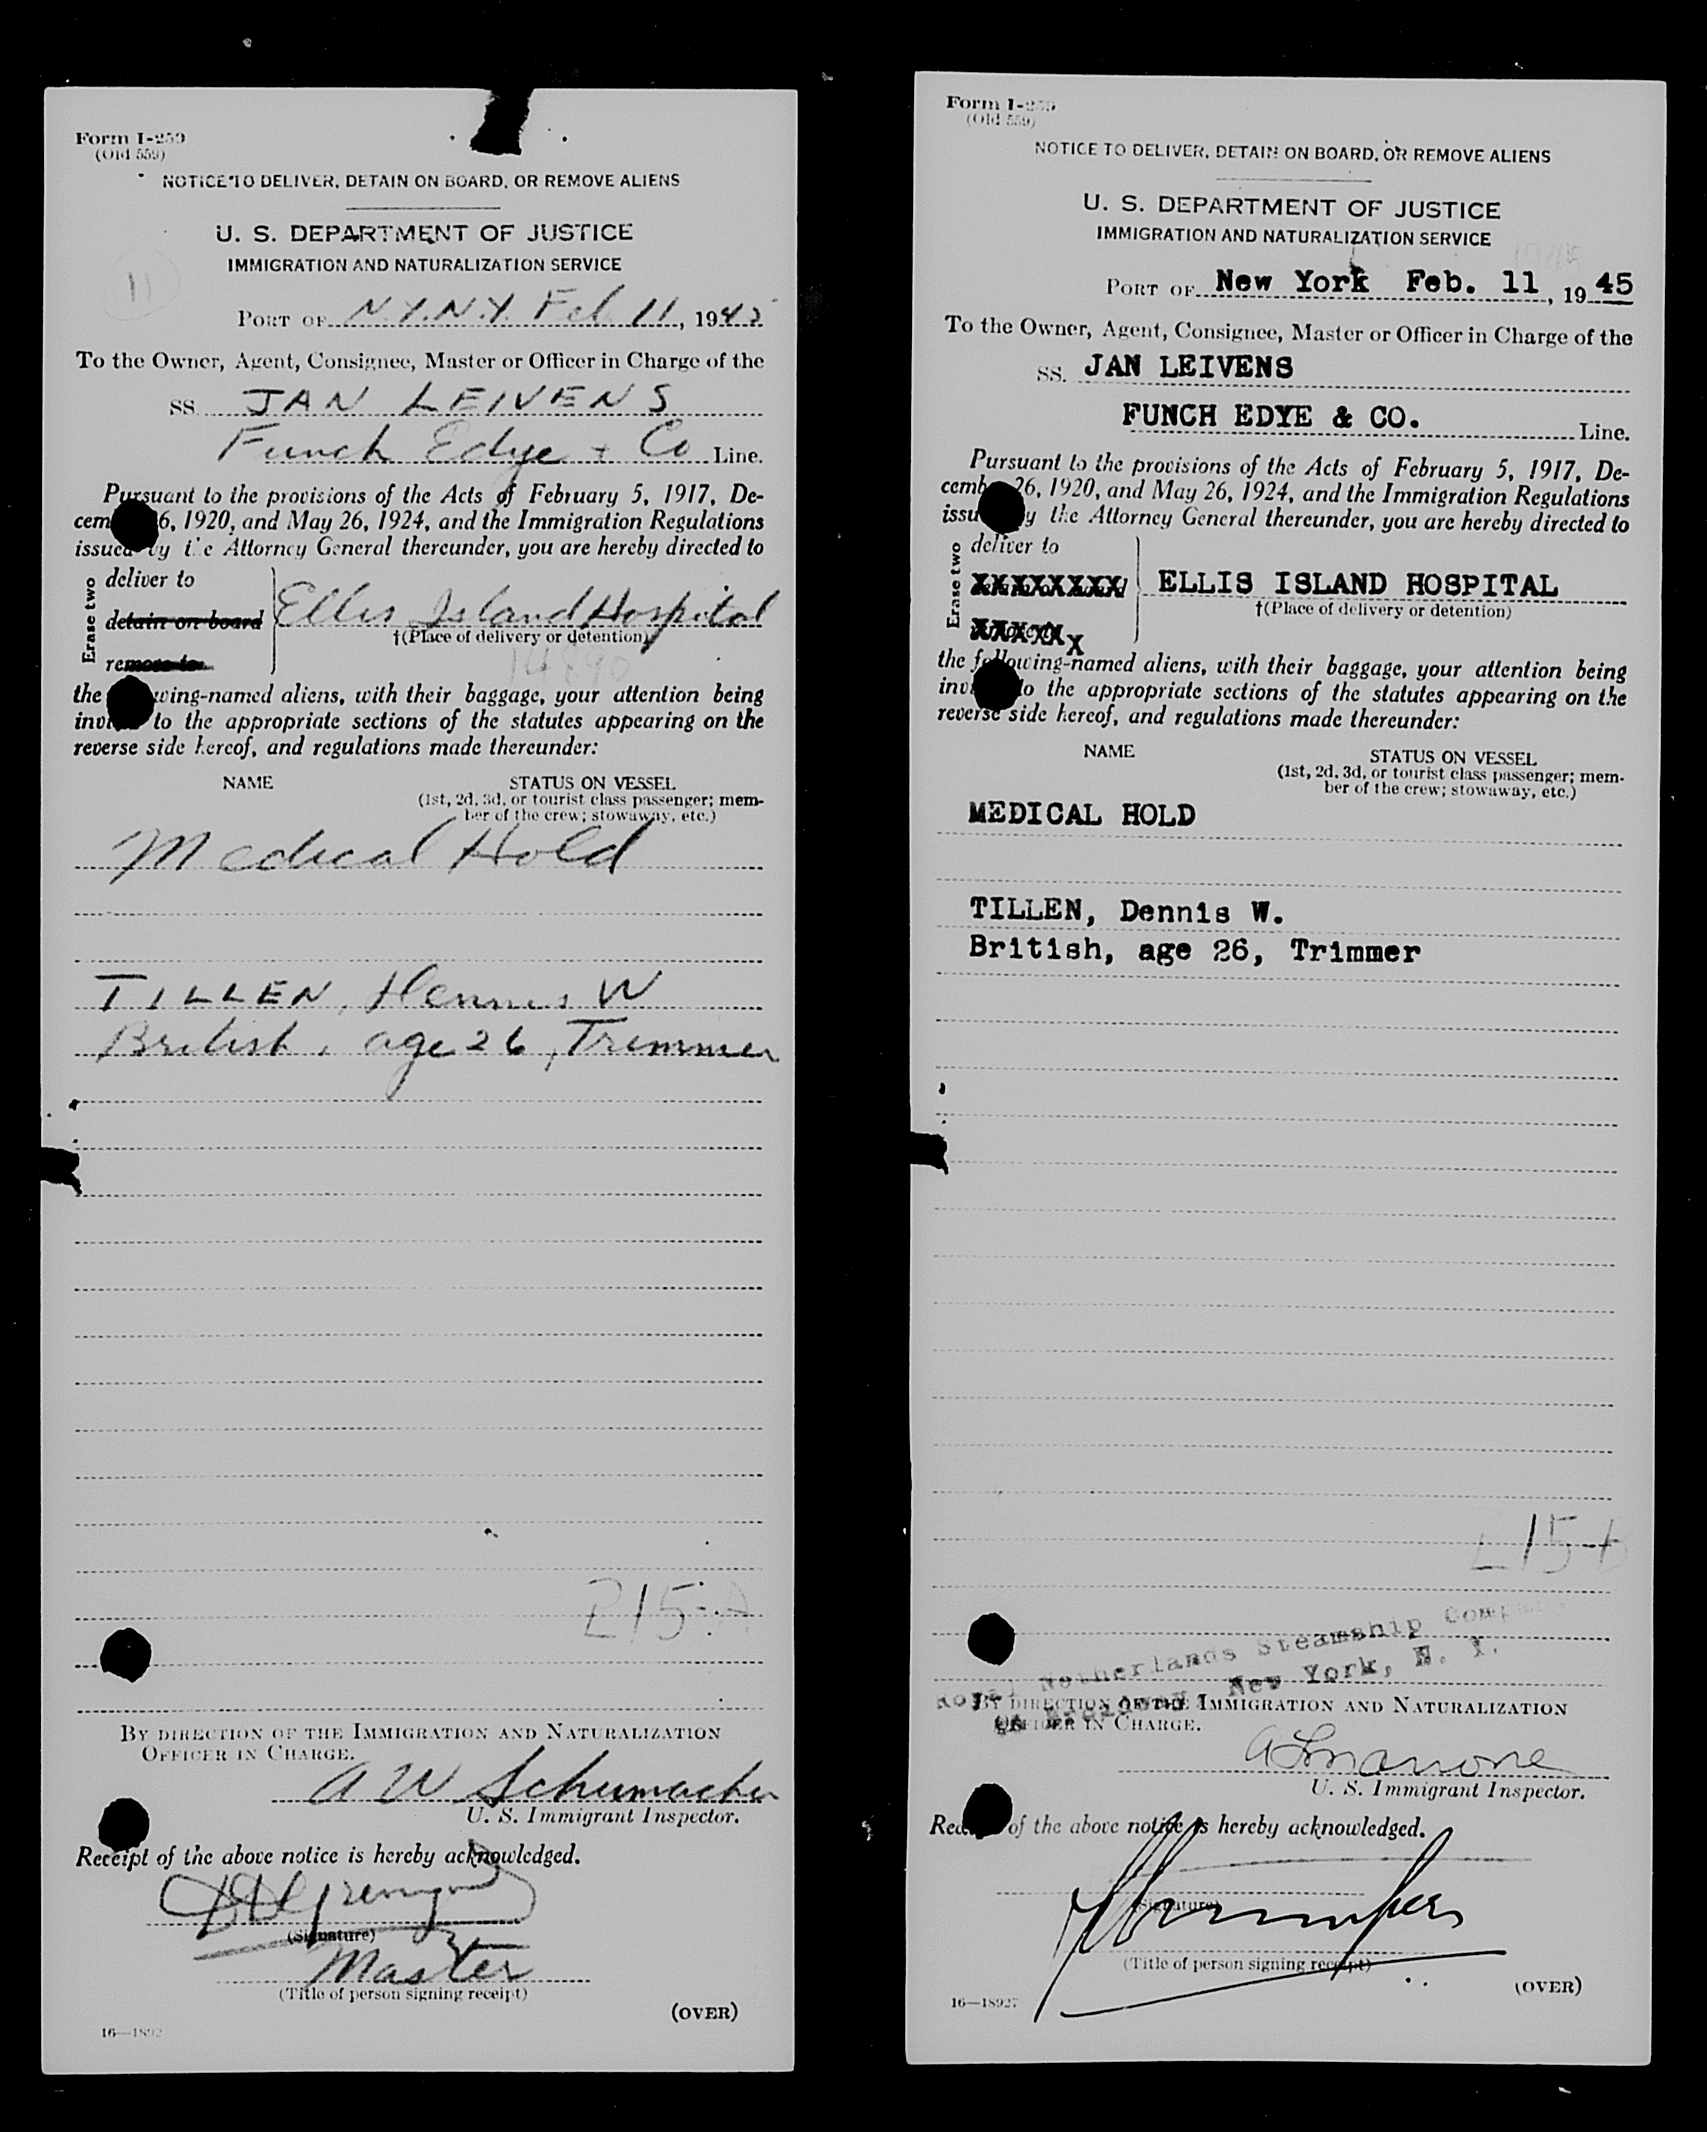 Form I-259
(Old 559)
NOTICE TO DELIVER, DETAIN ON BOARD, OR REMOVE ALIENS
U. S. DEPARTMENT OF JUSTICE
IMMIGRATION AND NATURALIZATION SERVICE
11
PORT OF N.Y.N.Y. Feb 11, 1945
To the Owner, Agent, Consignee, Master or Officer in Charge of the
SS. JAN LEIVENS
Funch Edye + Co Line.
Pursuant to the provisions of the Acts of February 5, 1917, De-
cem 6, 1920, and May 26, 1924, and the Immigration Regulations
issued by the Attorney General thereunder, you are hereby directed to
Erase two
deliver to
detain on board
remove to
Ellis Island Hospital
†(Place of delivery or detention)
14890
the wing-named aliens, with their baggage, your attention being
invi to the appropriate sections of the statutes appearing on the
reverse side hereof, and regulations made thereunder:
NAME
STATUS ON VESSEL
(1st, 2d, 3d, or tourist class passenger; mem-
ber of the crew; stowaway, etc.)
Medical Hold
TILLEN, Dennis W
British, age 26, Trimmer
215-A
BY DIRECTION OF THE IMMIGRATION AND NATURALIZATION
OFFICER IN CHARGE.
A W Schumacher
U. S. Immigrant Inspector.
Receipt of the above notice is hereby acknowledged.
(Signature)
Master
(Title of person signing receipt)
(OVER)
16—1892
Form I-259
(Old 559)
NOTICE TO DELIVER, DETAIN ON BOARD, OR REMOVE ALIENS
U. S. DEPARTMENT OF JUSTICE
IMMIGRATION AND NATURALIZATION SERVICE
PORT OF New York Feb. 11, 1945
To the Owner, Agent, Consignee, Master or Officer in Charge of the
SS. JAN LEIVENS
FUNCH EDYE & CO. Line.
Pursuant to the provisions of the Acts of February 5, 1917, De-
cemb 26, 1920, and May 26, 1924, and the Immigration Regulations
issu y the Attorney General thereunder, you are hereby directed to
Erase two
deliver to
XXXXXXXX
XXXXX X
ELLIS ISLAND HOSPITAL
†(Place of delivery or detention)
the following-named aliens, with their baggage, your attention being
invi to the appropriate sections of the statutes appearing on the
reverse side hereof, and regulations made thereunder:
NAME
STATUS ON VESSEL
(1st, 2d, 3d, or tourist class passenger; mem-
ber of the crew; stowaway, etc.)
MEDICAL HOLD
TILLEN, Dennis W.
British, age 26, Trimmer
Royal Netherlands Steamship Comp
Broadway New York, N. Y.
BY DIRECTION OF THE IMMIGRATION AND NATURALIZATION
OFFICER IN CHARGE.
U. S. Immigrant Inspector.
Rec of the above notice is hereby acknowledged.
(Signature)
(Title of person signing receipt)
(OVER)
16—18927